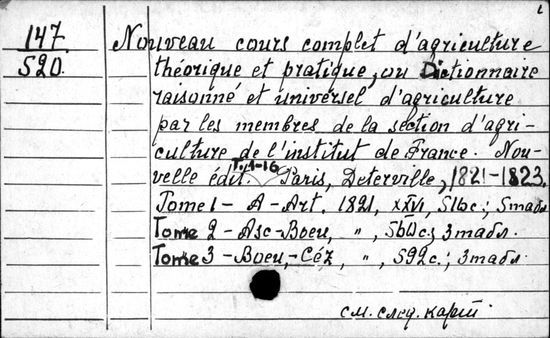 147.
520.
Nouveau cours complet d'agriculture
théorique et pratique, ou Dictionnaire
raisonné et universel d'agriculture
par les membres de la section d'agri-
culture de l'institut de France. Nou-
velle édit. T. 1-16 Paris, Deterville, 1821-1823.
Tome 1 - A - Art. 1821, XXVI, 516c.; 5табл.
Tome 2 - Asc-Boeu, „, 560c.; 3табл.
Tome 3 - Boeu,-Céz, „, 592c.; 3табл.
см. след. карт.